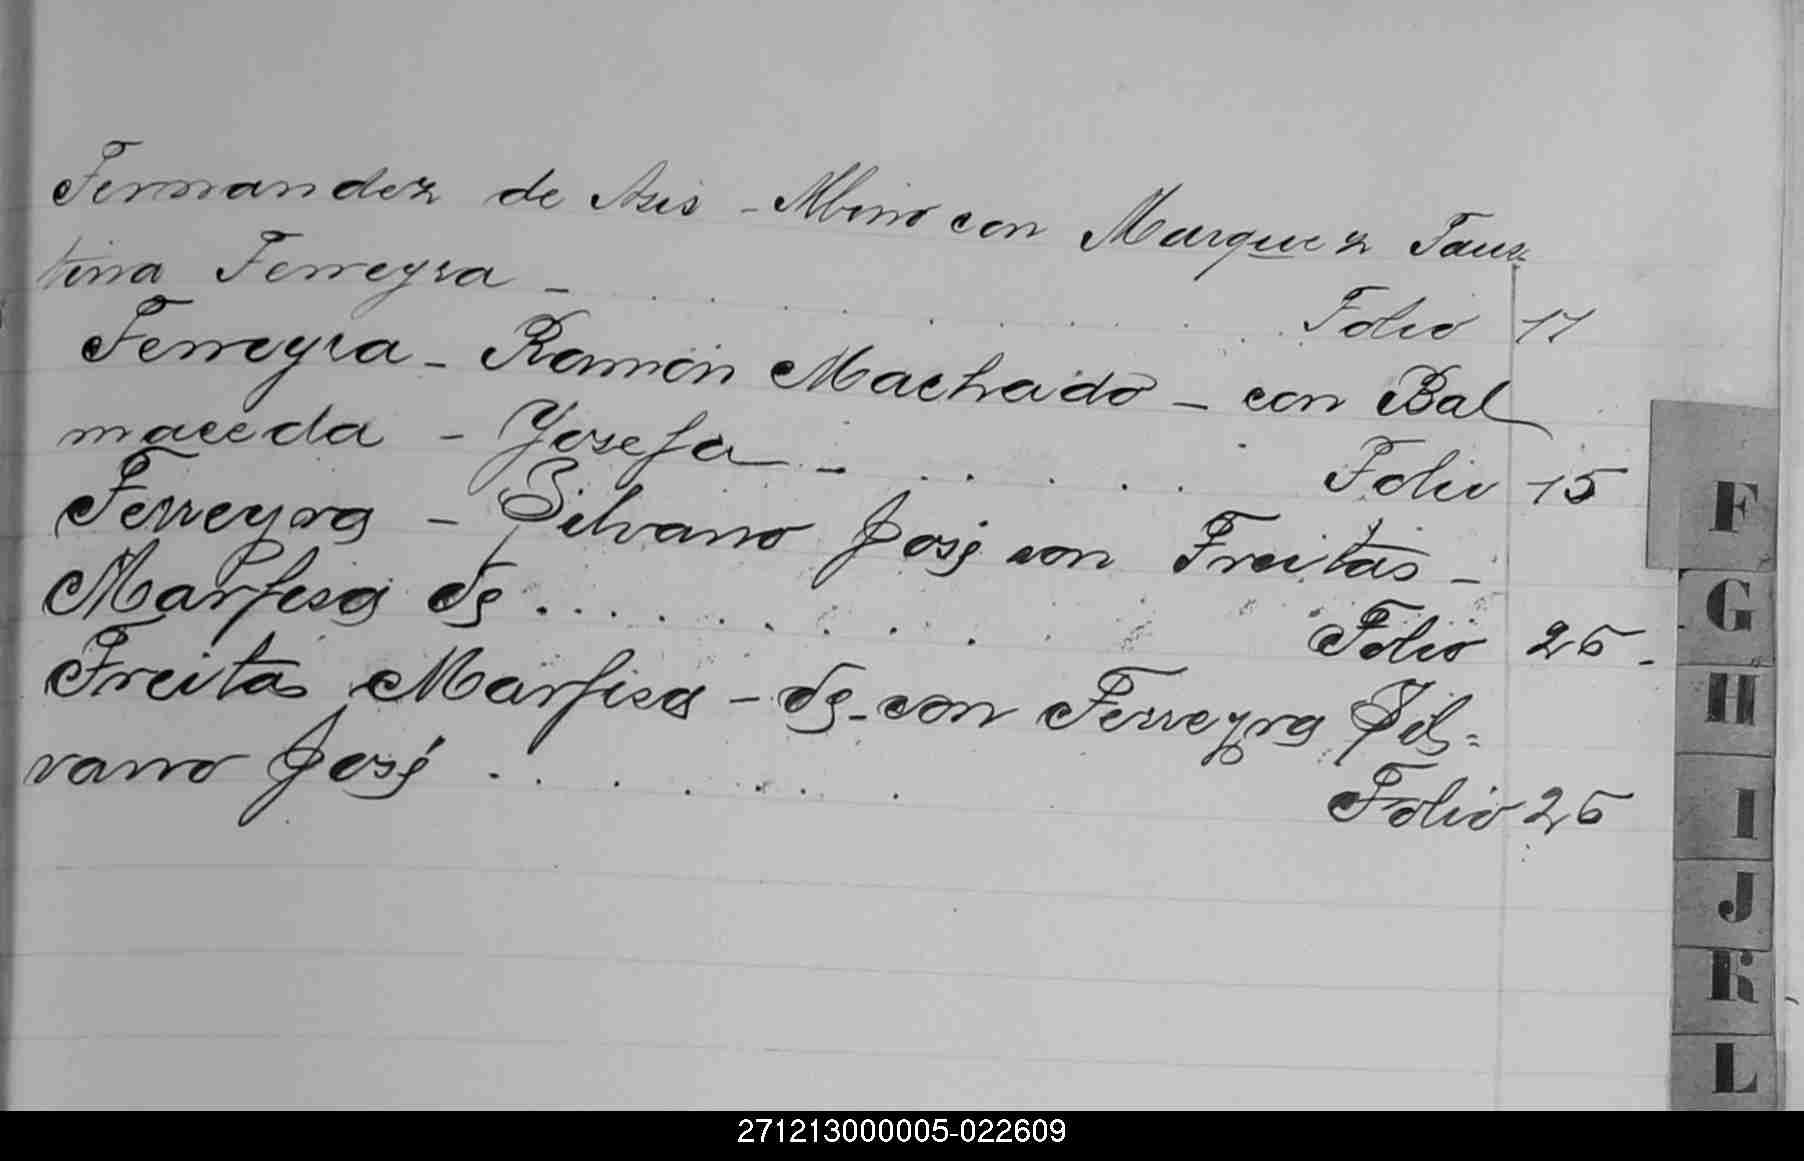 Fernandez de Asis - Albino con Marquez Faus
tina Ferreyra - . . . . . . . . . . Folio 17
Ferreyra - Ramón Machado - con Bal
maceda - Josefa - . . . . . . Folio 15
Ferreyra - Silvano José con Freitas -
Marfisa de . . . . . . . . Folio 25.
Freitas Marfisa - de - con Ferreyra Sil=
vano José . . . . . . Folio 25
F
G
H
I
J
K
L
271213000005-022609